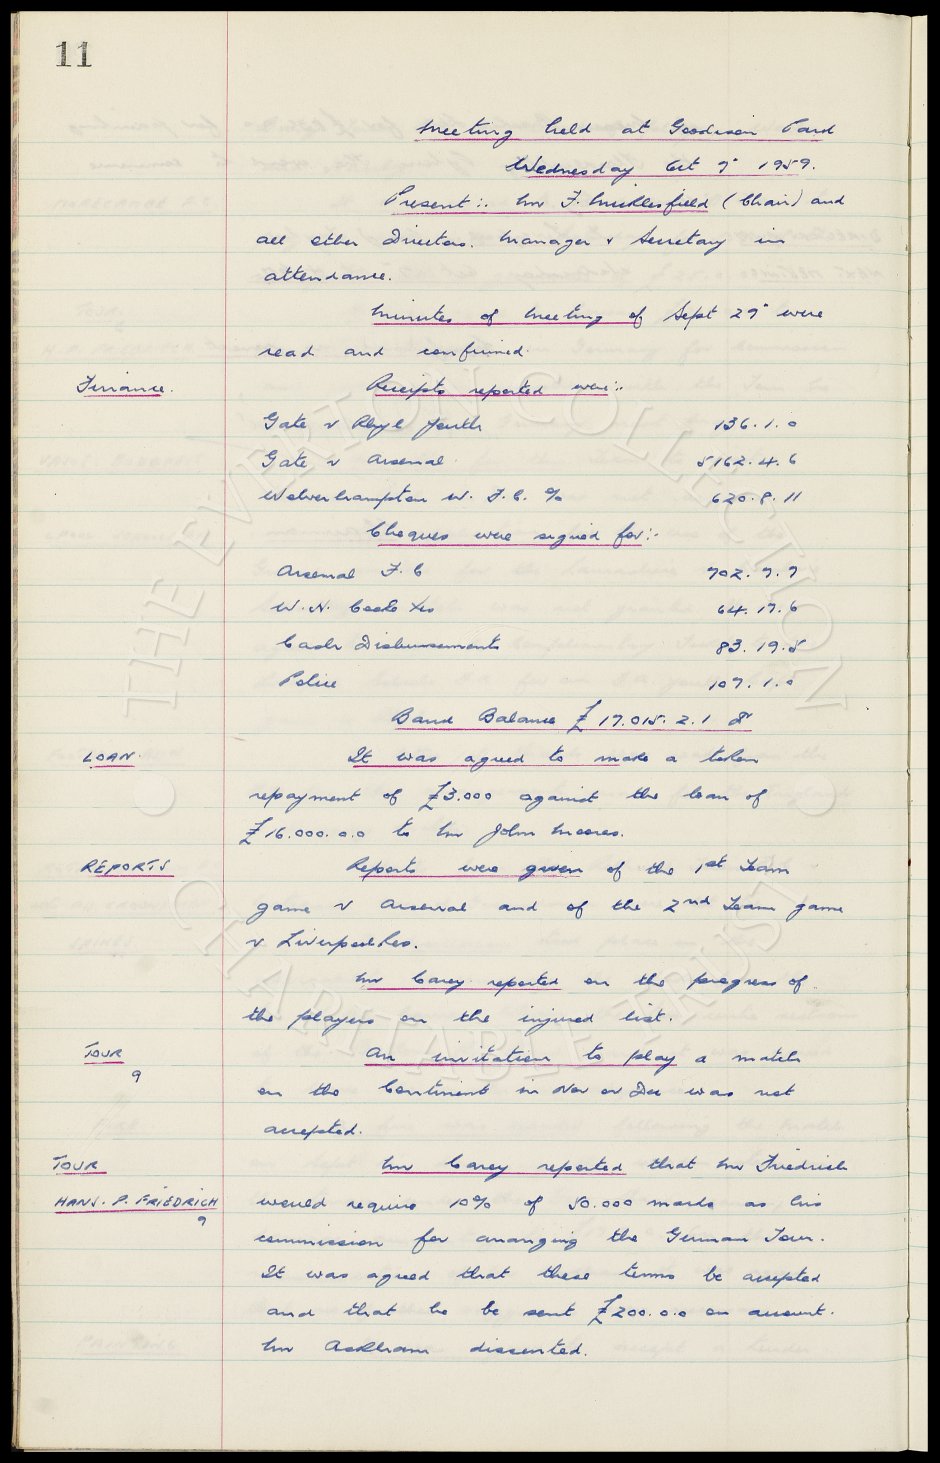 11
Meeting held at Goodison Park
Wednesday Oct 7" 1959.
Present:: Mr F. Micklesfield (Chair) and
all other Directors. Manager & Secretary in
attendance.
Minutes of meeting of Sept 29" were
read and confirmed.
Finance. Receipts reported were::
Gate v Rhyl Youth 136.1.0
Gate v Arsenal 5162.4.6
Wolverhampton W. F.C. % 620.8.11
Cheques were signed for:-
Arsenal F.C 702.7.7
W.N. Cooks 64.17.6
Cash Disbursements 83.19.5
Police 107.1.0
Bank Balance £17.015.2.1
LOAN. It was agreed to make a token
repayment of £3.000 against the loan of
£16.000.0.0 to Mr John Moores.
REPORTS Reports were given of the 1st Team
game v Arsenal and of the 2nd Team game
v Liverpool Res.
Mr Carey reported on the progress of
the players on the injured list.
TOUR An invitation to play a match
9 on the Continent in Nov or Dec was not
accepted.
TOUR Mr Carey reported that Mr Friedrich
HANS. P. FRIEDRICH would require 10% of 50.000 marks as his
9 commission for arranging the German Tour.
It was agreed that these terms be accepted
and that he be sent £200.0.0 on account.
Mr Ackham dissented.
THE EVERTON COLLECTION
CHARITABLE TRUST